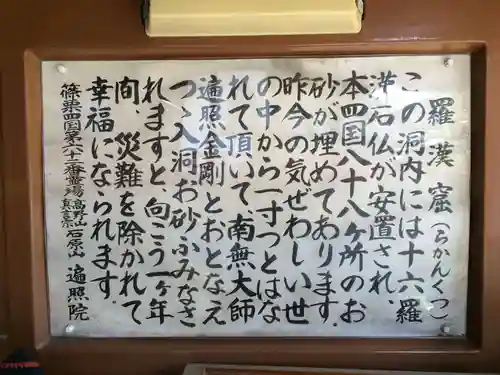 羅漢窟(らかんくつ)
この洞内には十六羅
漢石仏が安置され、
本四国八十八ヶ所のお
砂が埋めてあります。
昨今の気ぜわしい世
の中から一寸つとはな
れて頂いて南無大師
遍照金剛とおとなえ
つゝ入洞お砂ふみなさ
れますと、向こう一ヶ年
間、災難を除かれて
幸福になられます。
篠栗四国第六十二番霊場 高野山真言宗 石原山 遍照院